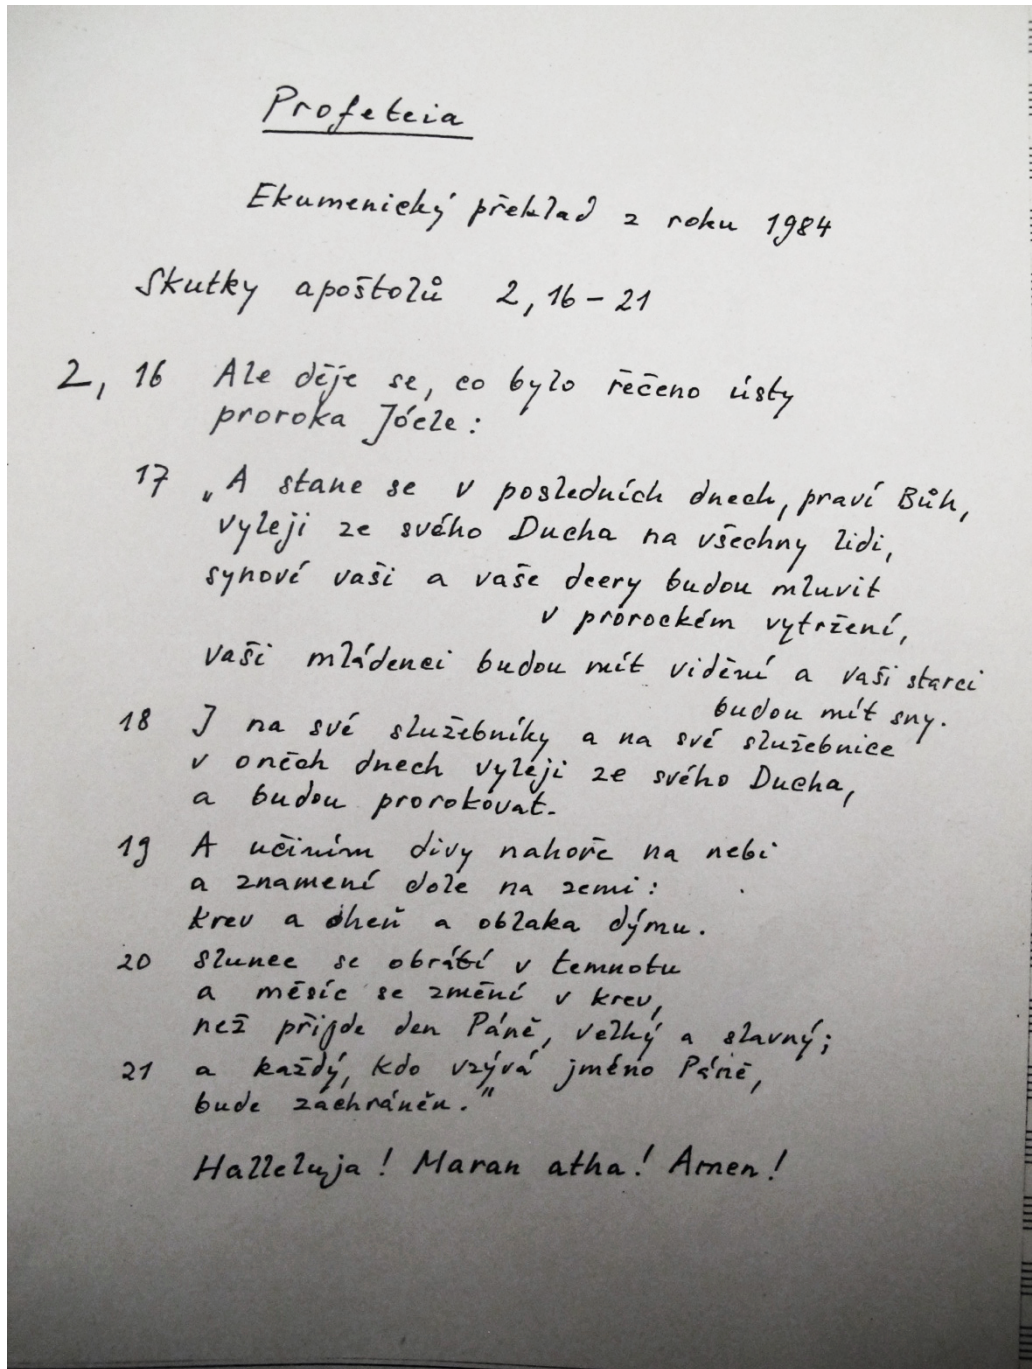 Profeteia
Ekumenický překlad z roku 1984
Skutky apoštolů 2, 16 - 21
2, 16 Ale děje se, co bylo řečeno ústy
proroka Jóele:
17 „A stane se v posledních dnech, praví Bůh,
vyleji ze svého Ducha na všechny lidi,
synové vaši a vaše dcery budou mluvit
v prorockém vytržení,
vaši mládenci budou mít vidění a vaši starci
budou mít sny.
18 I na své služebníky a na své služebnice
v oněch dnech vyleji ze svého Ducha,
a budou prorokovat.
19 A učiním divy nahoře na nebi
a znamení dole na zemi:
krev a oheň a oblaka dýmu.
20 Slunce se obrátí v temnotu
a měsíc se změní v krev,
než přijde den Páně, velký a slavný;
21 a každý, kdo vzývá jméno Páně,
bude zachráněn."
Halleluja! Maran atha! Amen!